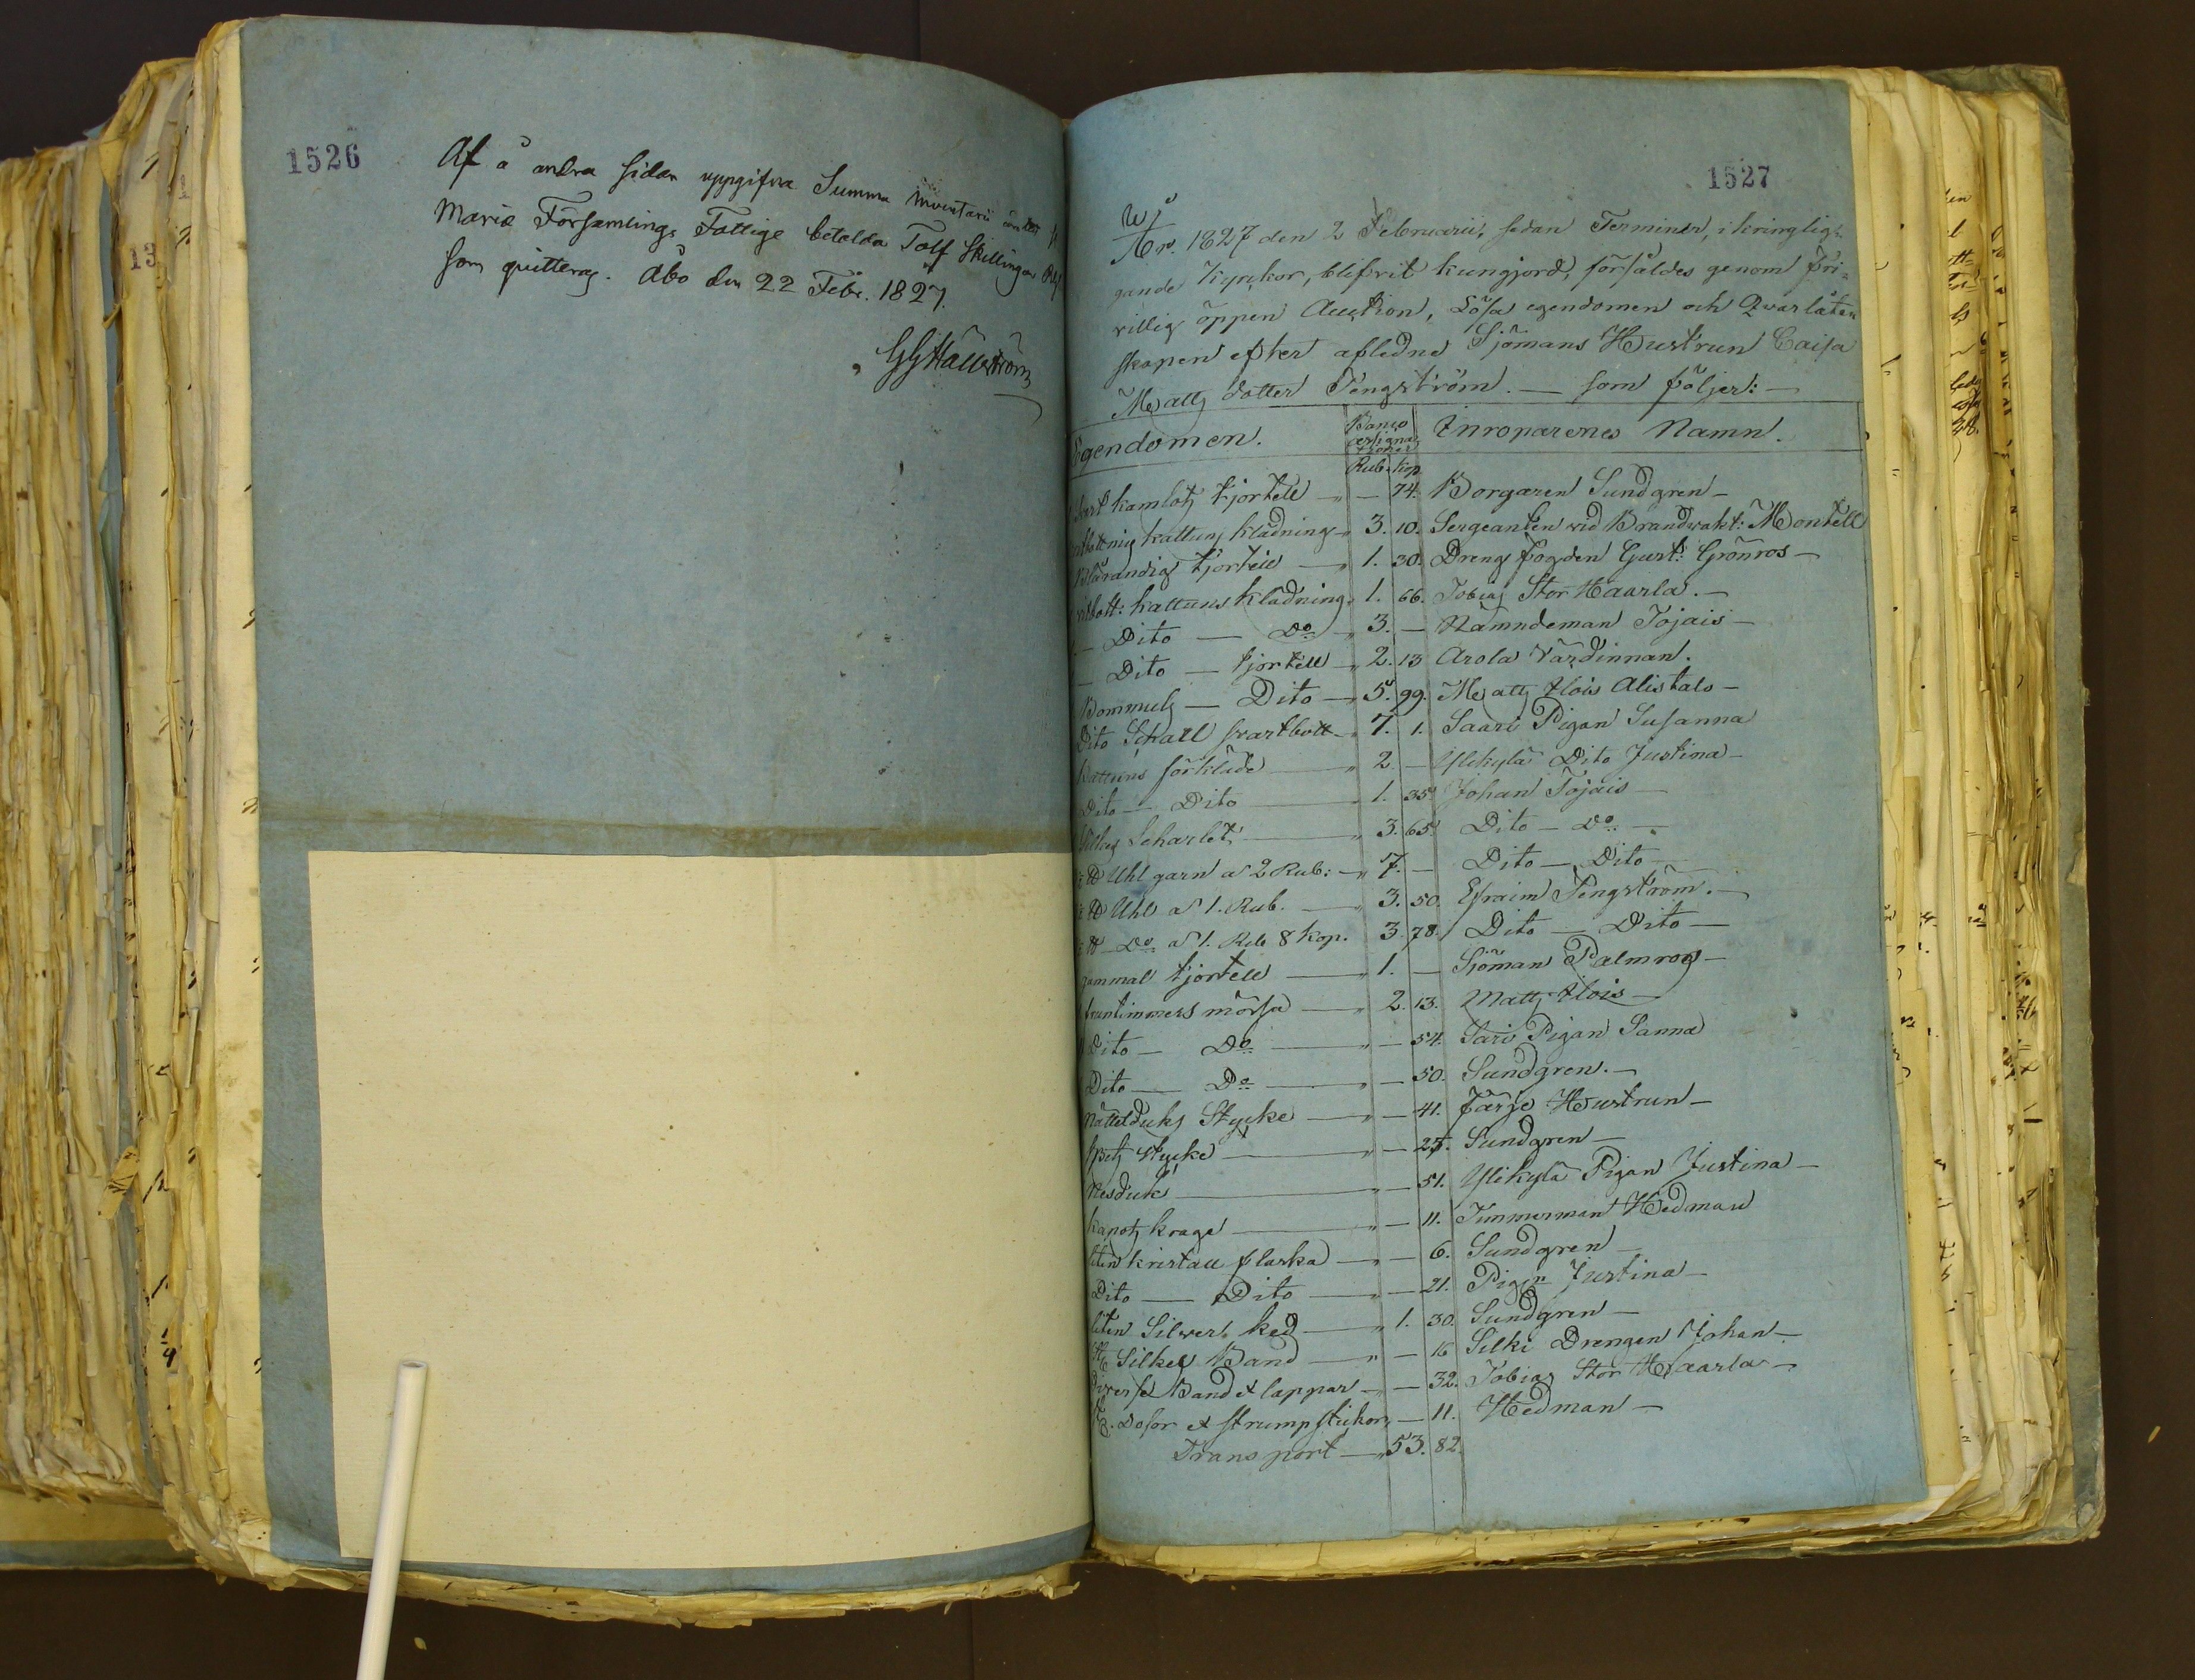 1526
Af å andra sidan uppgifne Summa Inventarii äro till
Mariæ Församlings Fattige betalda Tolf Skillingar
som quitteras. Åbo den 22 Febr. 1827.
GG Hällström
1527
År 1827 den 2 Februarii, sedan Terminer, i kringlig-
gande Kyrkor, blifvit kungjord, försåldes genom fri-
villig öppen Auction, Lösa egendomen och Qvarlåten
skapen efter afledne Sjömans Hustrun Caisa
Matts dotter Tengström. — som följer: —
Egendomen. Banco assigna tioner Inroparenes Namn.
Rub. kop
kamlots kjortell — 74. Borgaren Sundgren —
kattuns klädning 3. 10. Sergeanten vid Brandvakt: Montell
Blårandig kjortell — 1. 30. Dreng fogden Gust: Grönros —
kattuns klädning 1. 66. Tobias Stor Haarla. —
— Dito — Do 3. — Nämndeman Töjais —
— Dito — kjortell 2. 13 Arola Värdinnan.
Bommuls — Dito — 5. 99. Matts Alois Alistalo —
Dito Schall svartbott — 7. 1. Saari Pigan Susanna
Kattuns förkläde — 2. — Ylikylä Dito Justina —
Dito — Dito 1. 35 Johan Töjais —
Scharlet 3. 65. Dito — Do —
℔ Uhl garn a 2 Rub: — 7. — Dito — Dito
℔ Uhl a 1. Rub. 3. 50. Efraim Tengström. —
℔ — Do a 1. Rub 8 kop. 3. 78. Dito — Dito —
gammal kjortell 1. — Sjöman Palmros —
fruntimmers mössa 2. 13. Matts Alois —
Dito — Do — 54. Sari Pigan Sanna
Dito — Do — 50. Sundgren. —
Nättelduks Stycke — 41. Färje Hustrun —
spets stycke — 25. Sundgren —
Nesduk — 51. Ylikylä Pigan Justina —
kapots krage — 11. Timmerman Hedman
liten kristall flaska — 6. Sundgren —
Dito — Dito — 21. Pigan Justina —
liten Silver ked 1. 30. Sundgren —
Silkes Band — 16 Silki Drengen Johan —
Diverse Band et lappar — 32. Tobias Stor Haarla —
Dosor et strump stickor — 11. Hedman —
Transport — 53. 82.